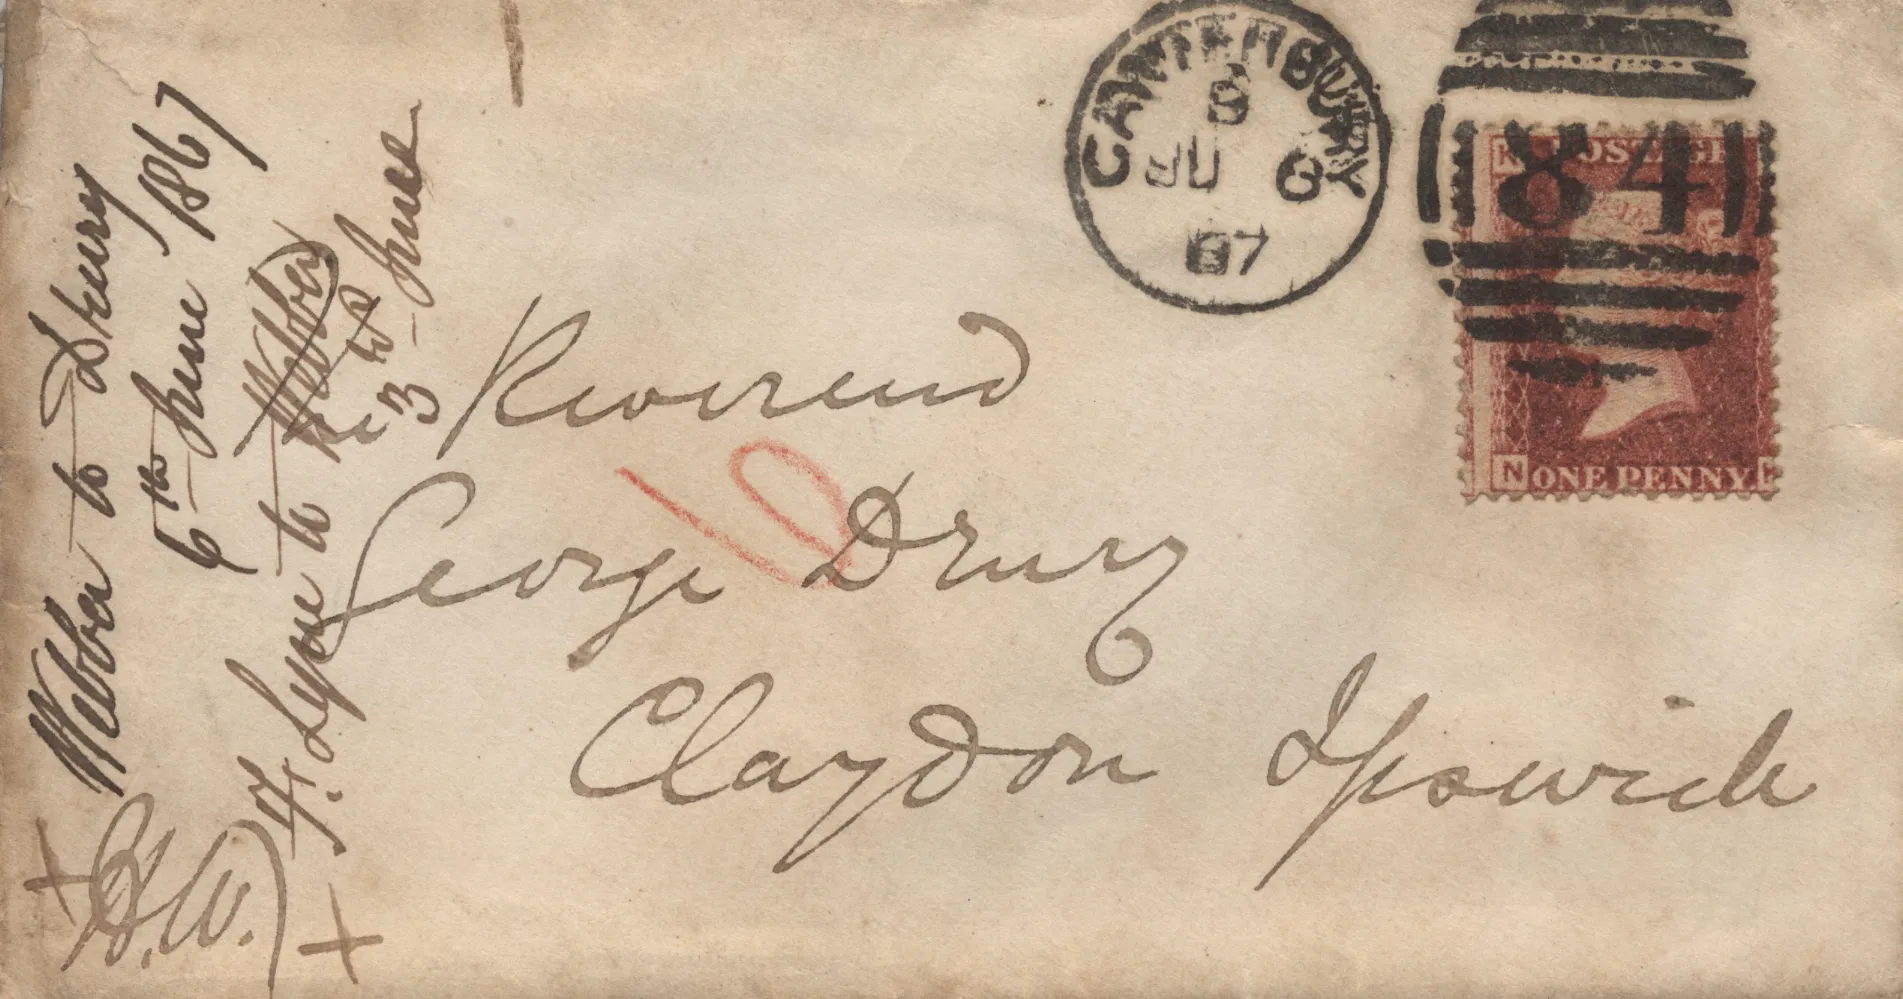 CANTERBURY
B
JU 6
67
184
K POSTAGE G
N ONE PENNY K
Reverend
George Drury
Claydon Ipswich
10
Webber to Drury
6th June 1867
F. Lyne to Webber
3rd June
H.W.